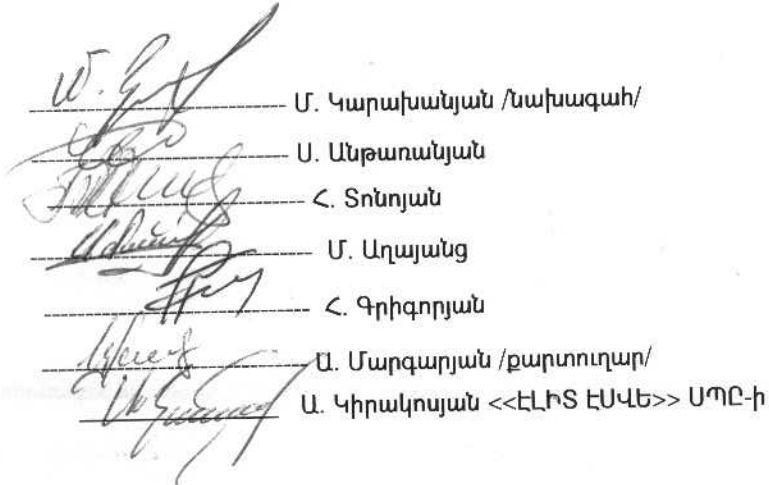 Մ. Կարախանյան /նախագահ/
Ս. Անթառանյան
Հ. Տոնոյան
Մ. Աղայանց
Հ. Գրիգորյան
Ա. Մարգարյան /քարտուղար/
Ա. Կիրակոսյան <<ԷԼԻՏ ԷՍՎԵ>> ՍՊԸ-ի